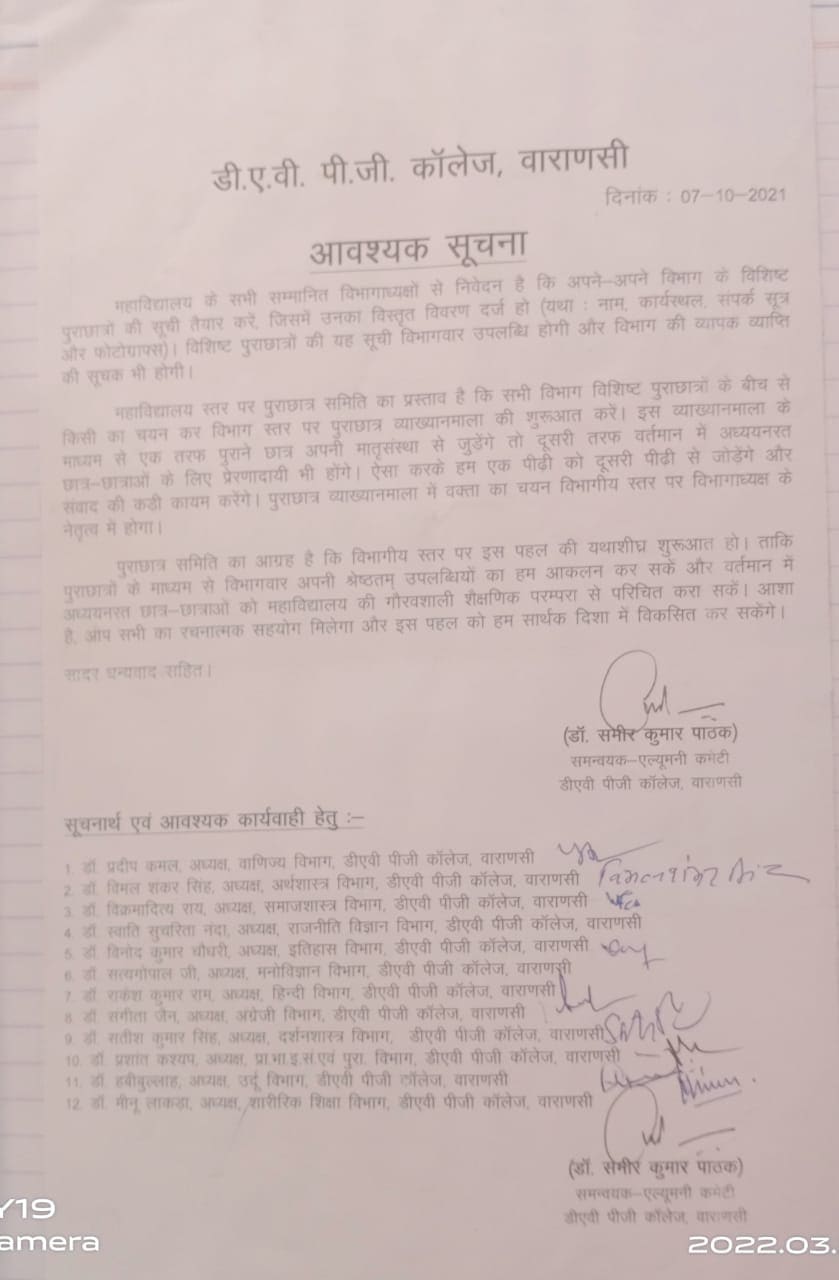 डी.ए.वी. पी.जी. कॉलेज, वाराणसी
दिनांक : 07-10-2021
आवश्यक सूचना
महाविद्यालय के सभी सम्मानित विभागाध्यक्षों से निवेदन है कि अपने-अपने विभाग के विशिष्ट
पुराछात्रों की सूची तैयार करें, जिसमें उनका विस्तृत विवरण दर्ज हो (यथा : नाम, कार्यस्थल, संपर्क सूत्र
और फोटोग्राफ्स)। विशिष्ट पुराछात्रों की यह सूची विभागवार उपलब्धि होगी और विभाग की व्यापक व्याप्ति
की सूचक भी होगी।
महाविद्यालय स्तर पर पुराछात्र समिति का प्रस्ताव है कि सभी विभाग विशिष्ट पुराछात्रों के बीच से
किसी का चयन कर विभाग स्तर पर पुराछात्र व्याख्यानमाला की शुरूआत करें। इस व्याख्यानमाला के
माध्यम से एक तरफ पुराने छात्र अपनी मातृसंस्था से जुड़ेंगे तो दूसरी तरफ वर्तमान में अध्ययनरत
छात्र-छात्राओं के लिए प्रेरणादायी भी होंगे। ऐसा करके हम एक पीढ़ी को दूसरी पीढ़ी से जोड़ेंगे और
संवाद की कड़ी कायम करेंगे। पुराछात्र व्याख्यानमाला में वक्ता का चयन विभागीय स्तर पर विभागाध्यक्ष के
नेतृत्व में होगा।
पुराछात्र समिति का आग्रह है कि विभागीय स्तर पर इस पहल की यथाशीघ्र शुरूआत हो। ताकि
पुराछात्रों के माध्यम से विभागवार अपनी श्रेष्ठतम् उपलब्धियों का हम आकलन कर सकें और वर्तमान में
अध्ययनरत छात्र-छात्राओं को महाविद्यालय की गौरवशाली शैक्षणिक परम्परा से परिचित करा सकें। आशा
है, आप सभी का रचनात्मक सहयोग मिलेगा और इस पहल को हम सार्थक दिशा में विकसित कर सकेंगे।
सादर धन्यवाद सहित।
(डॉ. समीर कुमार पाठक)
समन्वयक-एल्यूमनी कमेटी
डीएवी पीजी कॉलेज, वाराणसी
सूचनार्थ एवं आवश्यक कार्यवाही हेतु :-
1. डॉ. प्रदीप कमल, अध्यक्ष, वाणिज्य विभाग, डीएवी पीजी कॉलेज, वाराणसी
2. डॉ. विमल शंकर सिंह, अध्यक्ष, अर्थशास्त्र विभाग, डीएवी पीजी कॉलेज, वाराणसी विमल शंकर सिंह
3. डॉ. विक्रमादित्य राय, अध्यक्ष, समाजशास्त्र विभाग, डीएवी पीजी कॉलेज, वाराणसी
4. डॉ. स्वाति सुचरिता नंदा, अध्यक्ष, राजनीति विज्ञान विभाग, डीएवी पीजी कॉलेज, वाराणसी
5. डॉ. विनोद कुमार चौधरी, अध्यक्ष, इतिहास विभाग, डीएवी पीजी कॉलेज, वाराणसी
6. डॉ. सत्यगोपाल जी, अध्यक्ष, मनोविज्ञान विभाग, डीएवी पीजी कॉलेज, वाराणसी
7. डॉ. राकेश कुमार राम, अध्यक्ष, हिन्दी विभाग, डीएवी पीजी कॉलेज, वाराणसी
8. डॉ. संगीता जैन, अध्यक्ष, अंग्रेजी विभाग, डीएवी पीजी कॉलेज, वाराणसी
9. डॉ. सतीश कुमार सिंह, अध्यक्ष, दर्शनशास्त्र विभाग, डीएवी पीजी कॉलेज, वाराणसी
10. डॉ. प्रशांत कश्यप, अध्यक्ष, प्रा.भा.इ.सं.एवं पुरा. विभाग, डीएवी पीजी कॉलेज, वाराणसी
11. डॉ. हबीबुल्लाह, अध्यक्ष, उर्दू विभाग, डीएवी पीजी कॉलेज, वाराणसी
12. डॉ. मीनू लाकड़ा, अध्यक्ष, शारीरिक शिक्षा विभाग, डीएवी पीजी कॉलेज, वाराणसी
(डॉ. समीर कुमार पाठक)
समन्वयक-एल्यूमनी कमेटी
डीएवी पीजी कॉलेज, वाराणसी
Y19
amera
2022.03.